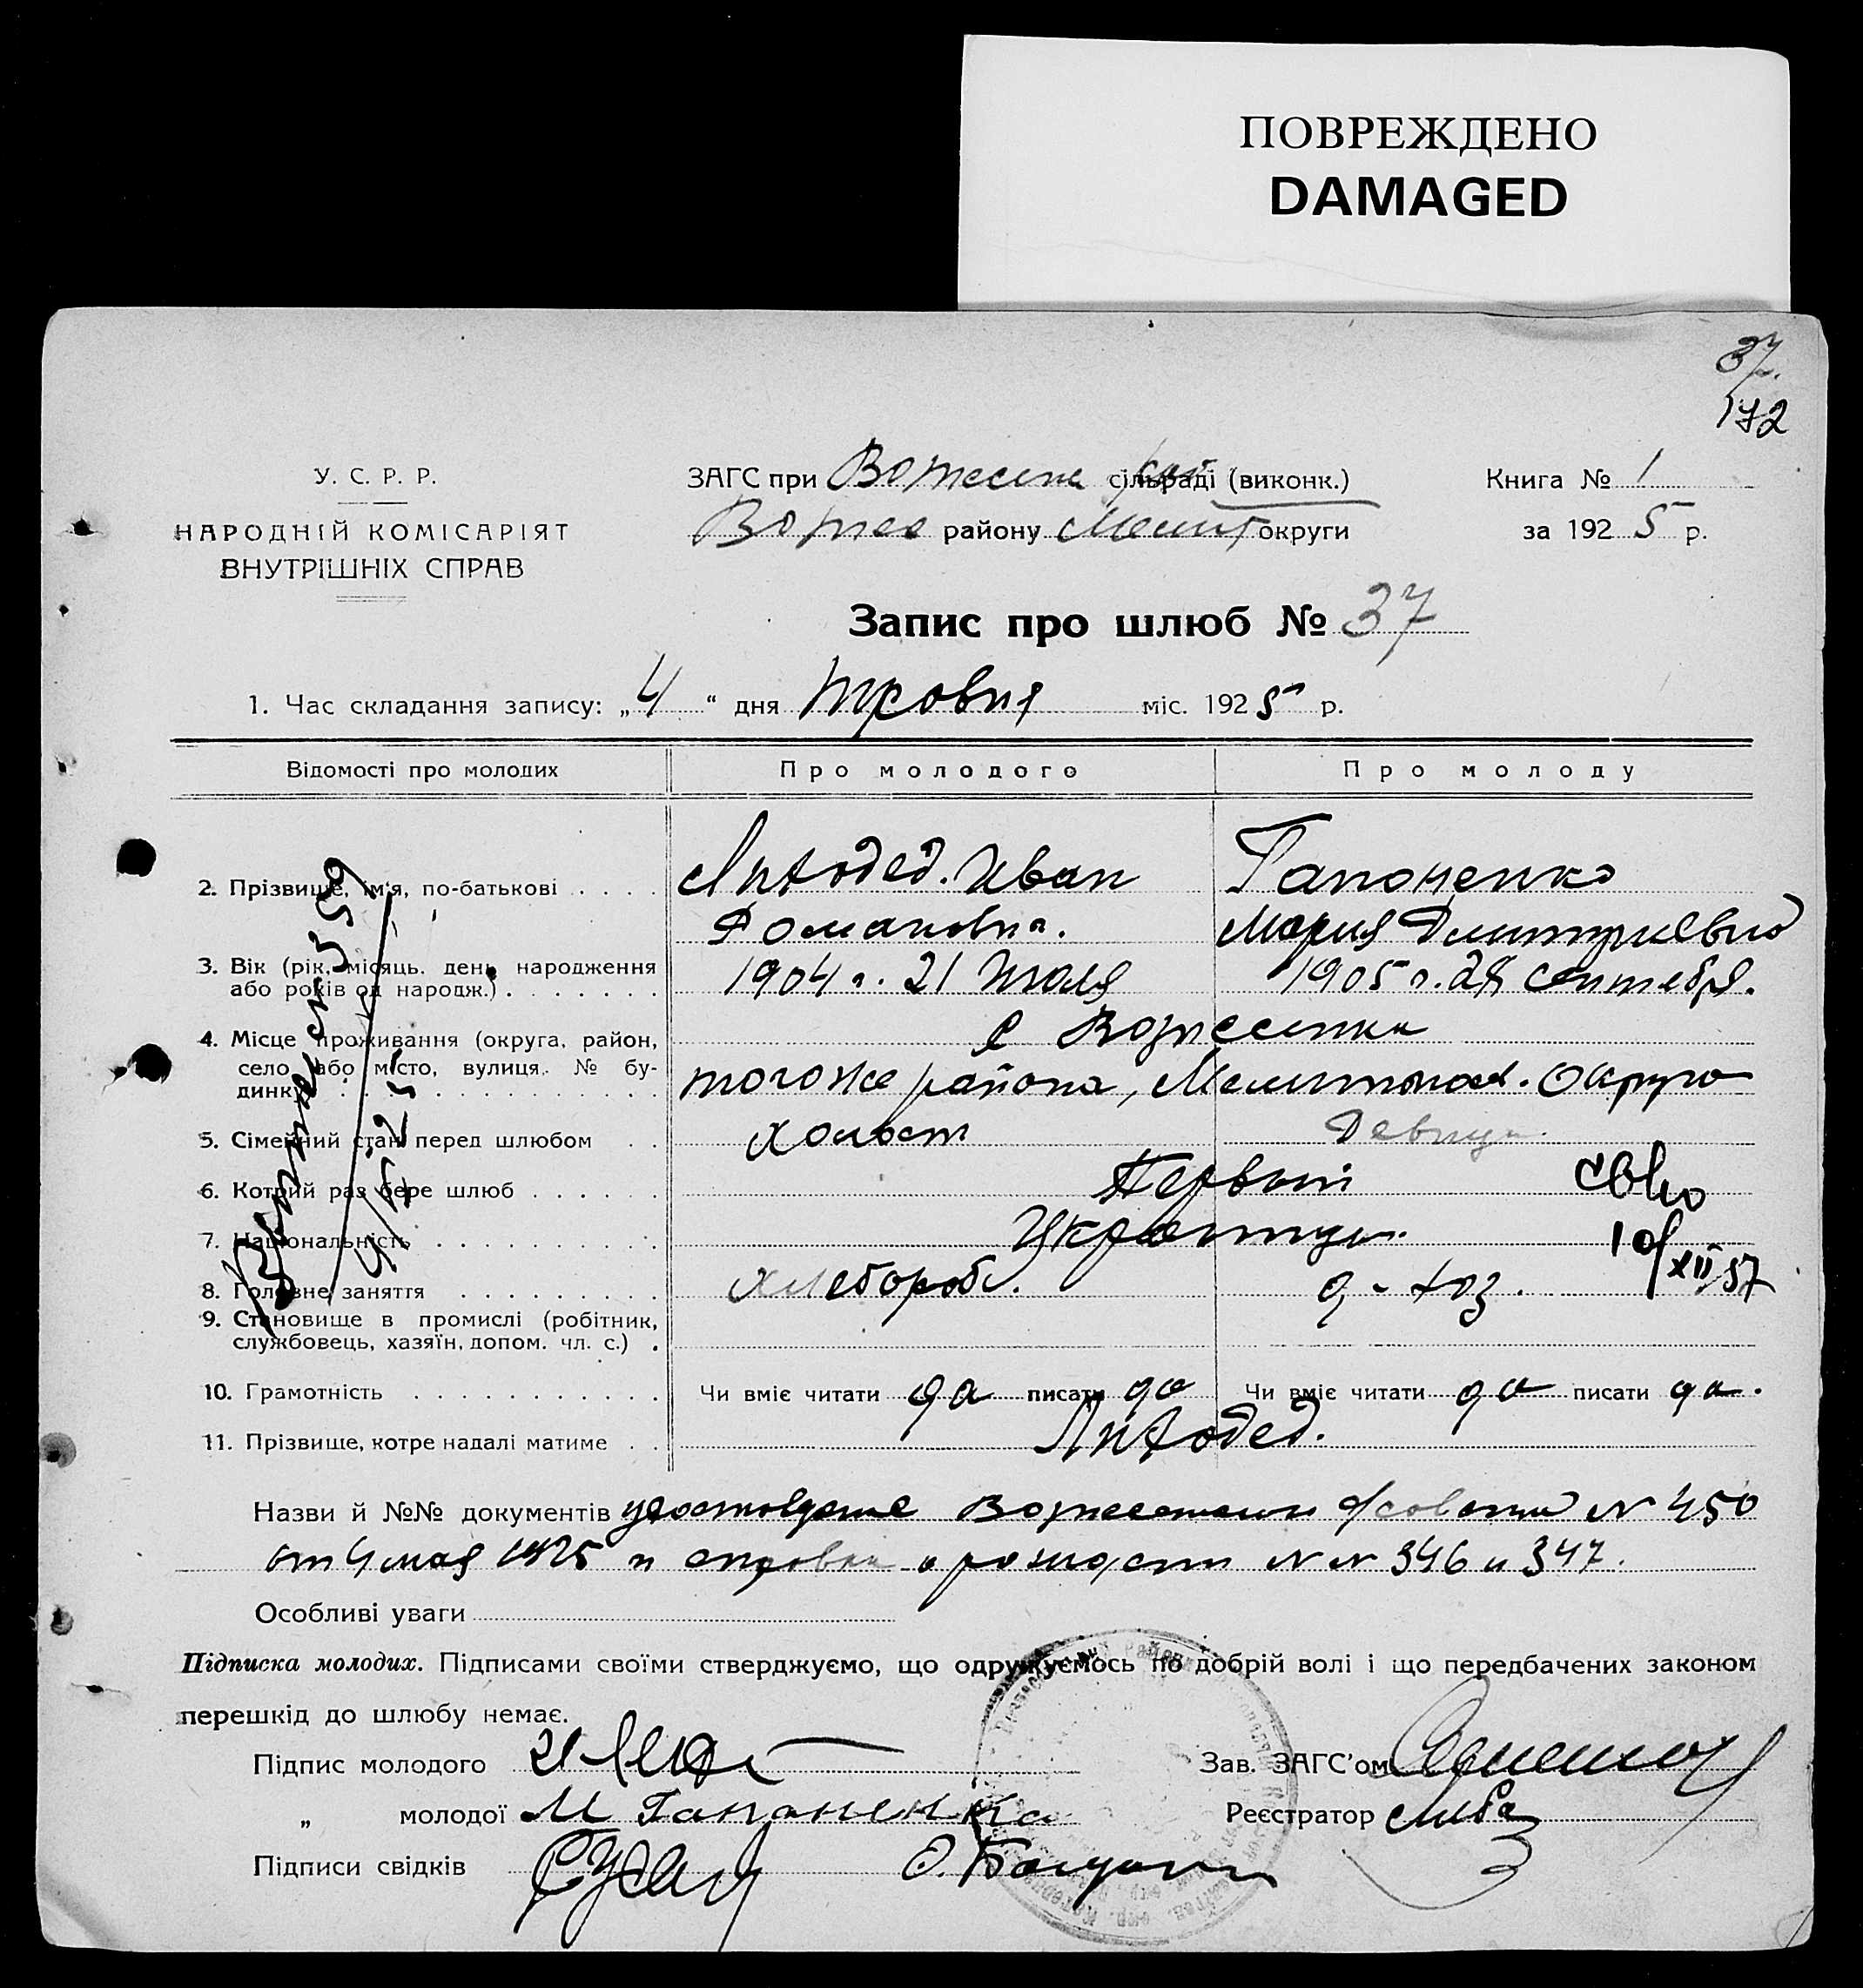 ПОВРЕЖДЕНО
DAMAGED
37.
172
У. С. Р. Р.
НАРОДНІЙ КОМІСАРІЯТ
ВНУТРІШНІХ СПРАВ
ЗАГС при сільраді (виконк.)
району Мелит округи
Книга № 1
за 1925 р.
Запис про шлюб № 37
1. Час складання запису: „4“ дня травня міс. 1925 р.
Відомості про молодих
Про молодого
Про молоду
2. Прізвище, ім'я, по-батькові . . . .
Лиходед. Иван
Романович.
Гапоненко
Мария Дмитриевна
3. Вік (рік, місяць. день народження
або років од народж.) . . . . . . .
1904 г. 21 Июля
1905 г. 28 Сентебря.
4. Місце проживання (округа, район,
село або місто, вулиця, № бу-
динку) . . . . . . . . . . . .
с Вознесенка
тогоже района, Мелитопол. Округа
5. Сімейний стан перед шлюбом . .
холост
Девица.
6. Котрий раз бере шлюб . . . . . .
Первый
7. Національність . . . . . . . . .
Украинцы.
10/XII 57
8. Головне заняття . . . . . . . . .
хлебороб.
д-хоз.
9. Становище в промислі (робітник,
службовець, хазяїн, допом. чл. с.) .
10. Грамотність . . . . . . . . . . .
Чи вміє читати да писати да
Чи вміє читати да писати да.
11. Прізвище, котре надалі матиме . .
Лиходед.
Назви й №№ документів удостоверение N 450
от 4 мая 1925 и справки о рождении N N 346 и 347.
Особливі уваги
Підписка молодих. Підписами своїми стверджуємо, що одружуємось по добрій волі і що передбачених законом
перешкід до шлюбу немає.
Підпис молодого
Зав. ЗАГС'ом
„ молодої М Гапаненка
Реєстратор
Підписи свідків